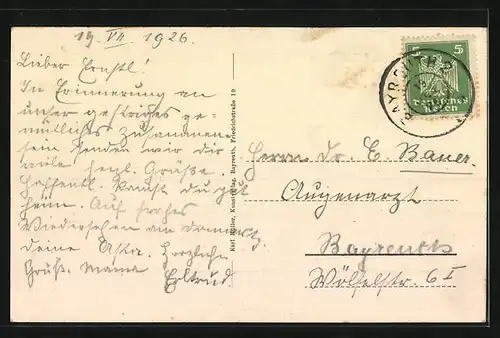 19. VII. 1926.
Lieber Ernstl!
In Erinnerung an
unser gestriges ge-
mütliches Zusammen-
sein senden wir dir
viele herzl. Grüße.
Hoffentl. kamst du gut
heim. Auf frohes
Wiedersehen am
deine Herzliche
Grüße Mama Ertrud
Karl Müller, Kunstverlag, Bayreuth, Friedrichstraße 10
5 5
Deutsches
Reich
BAYREUTH 2
Herrn Dr. E. Bauer
Augenarzt
Bayreuth
Wölfelstr. 6 I